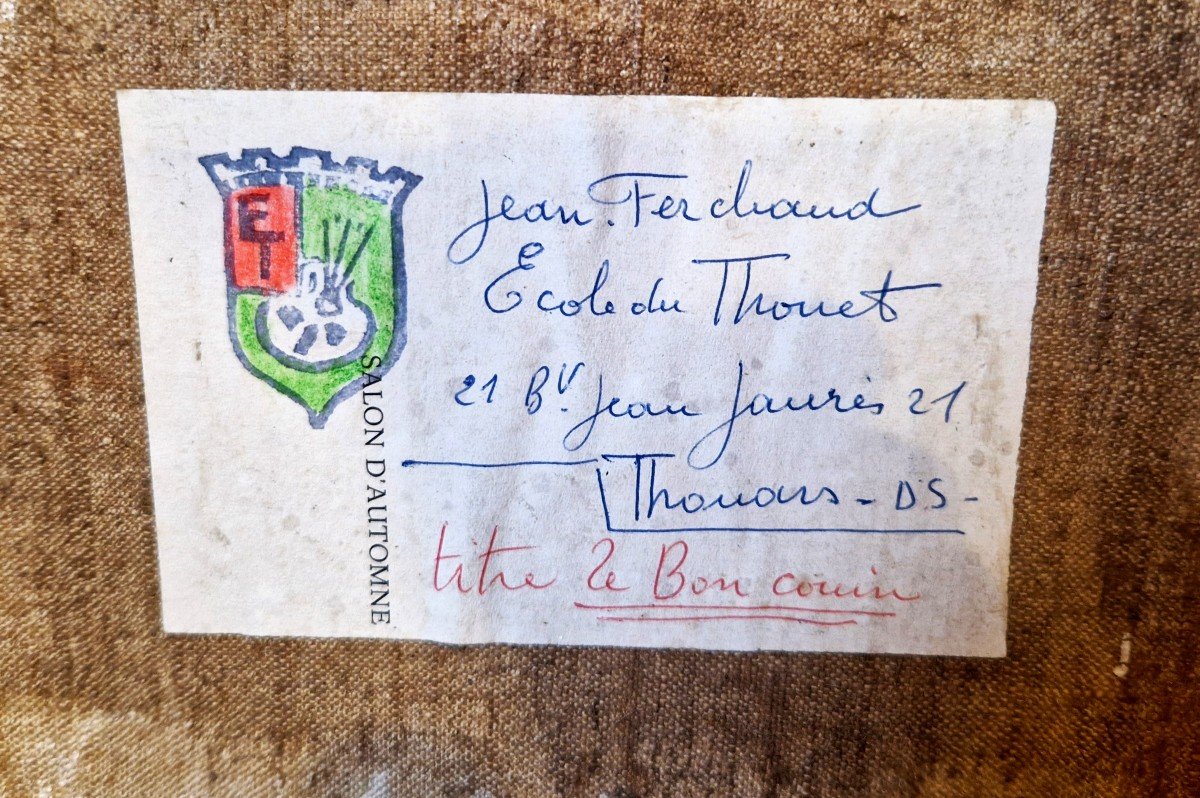 ET
SALON D'AUTOMNE
Jean Ferchaud
Ecole du Thouet
21 Bv. Jean Jaurès 21
Thouars - D.S -
titre Le Bon couin